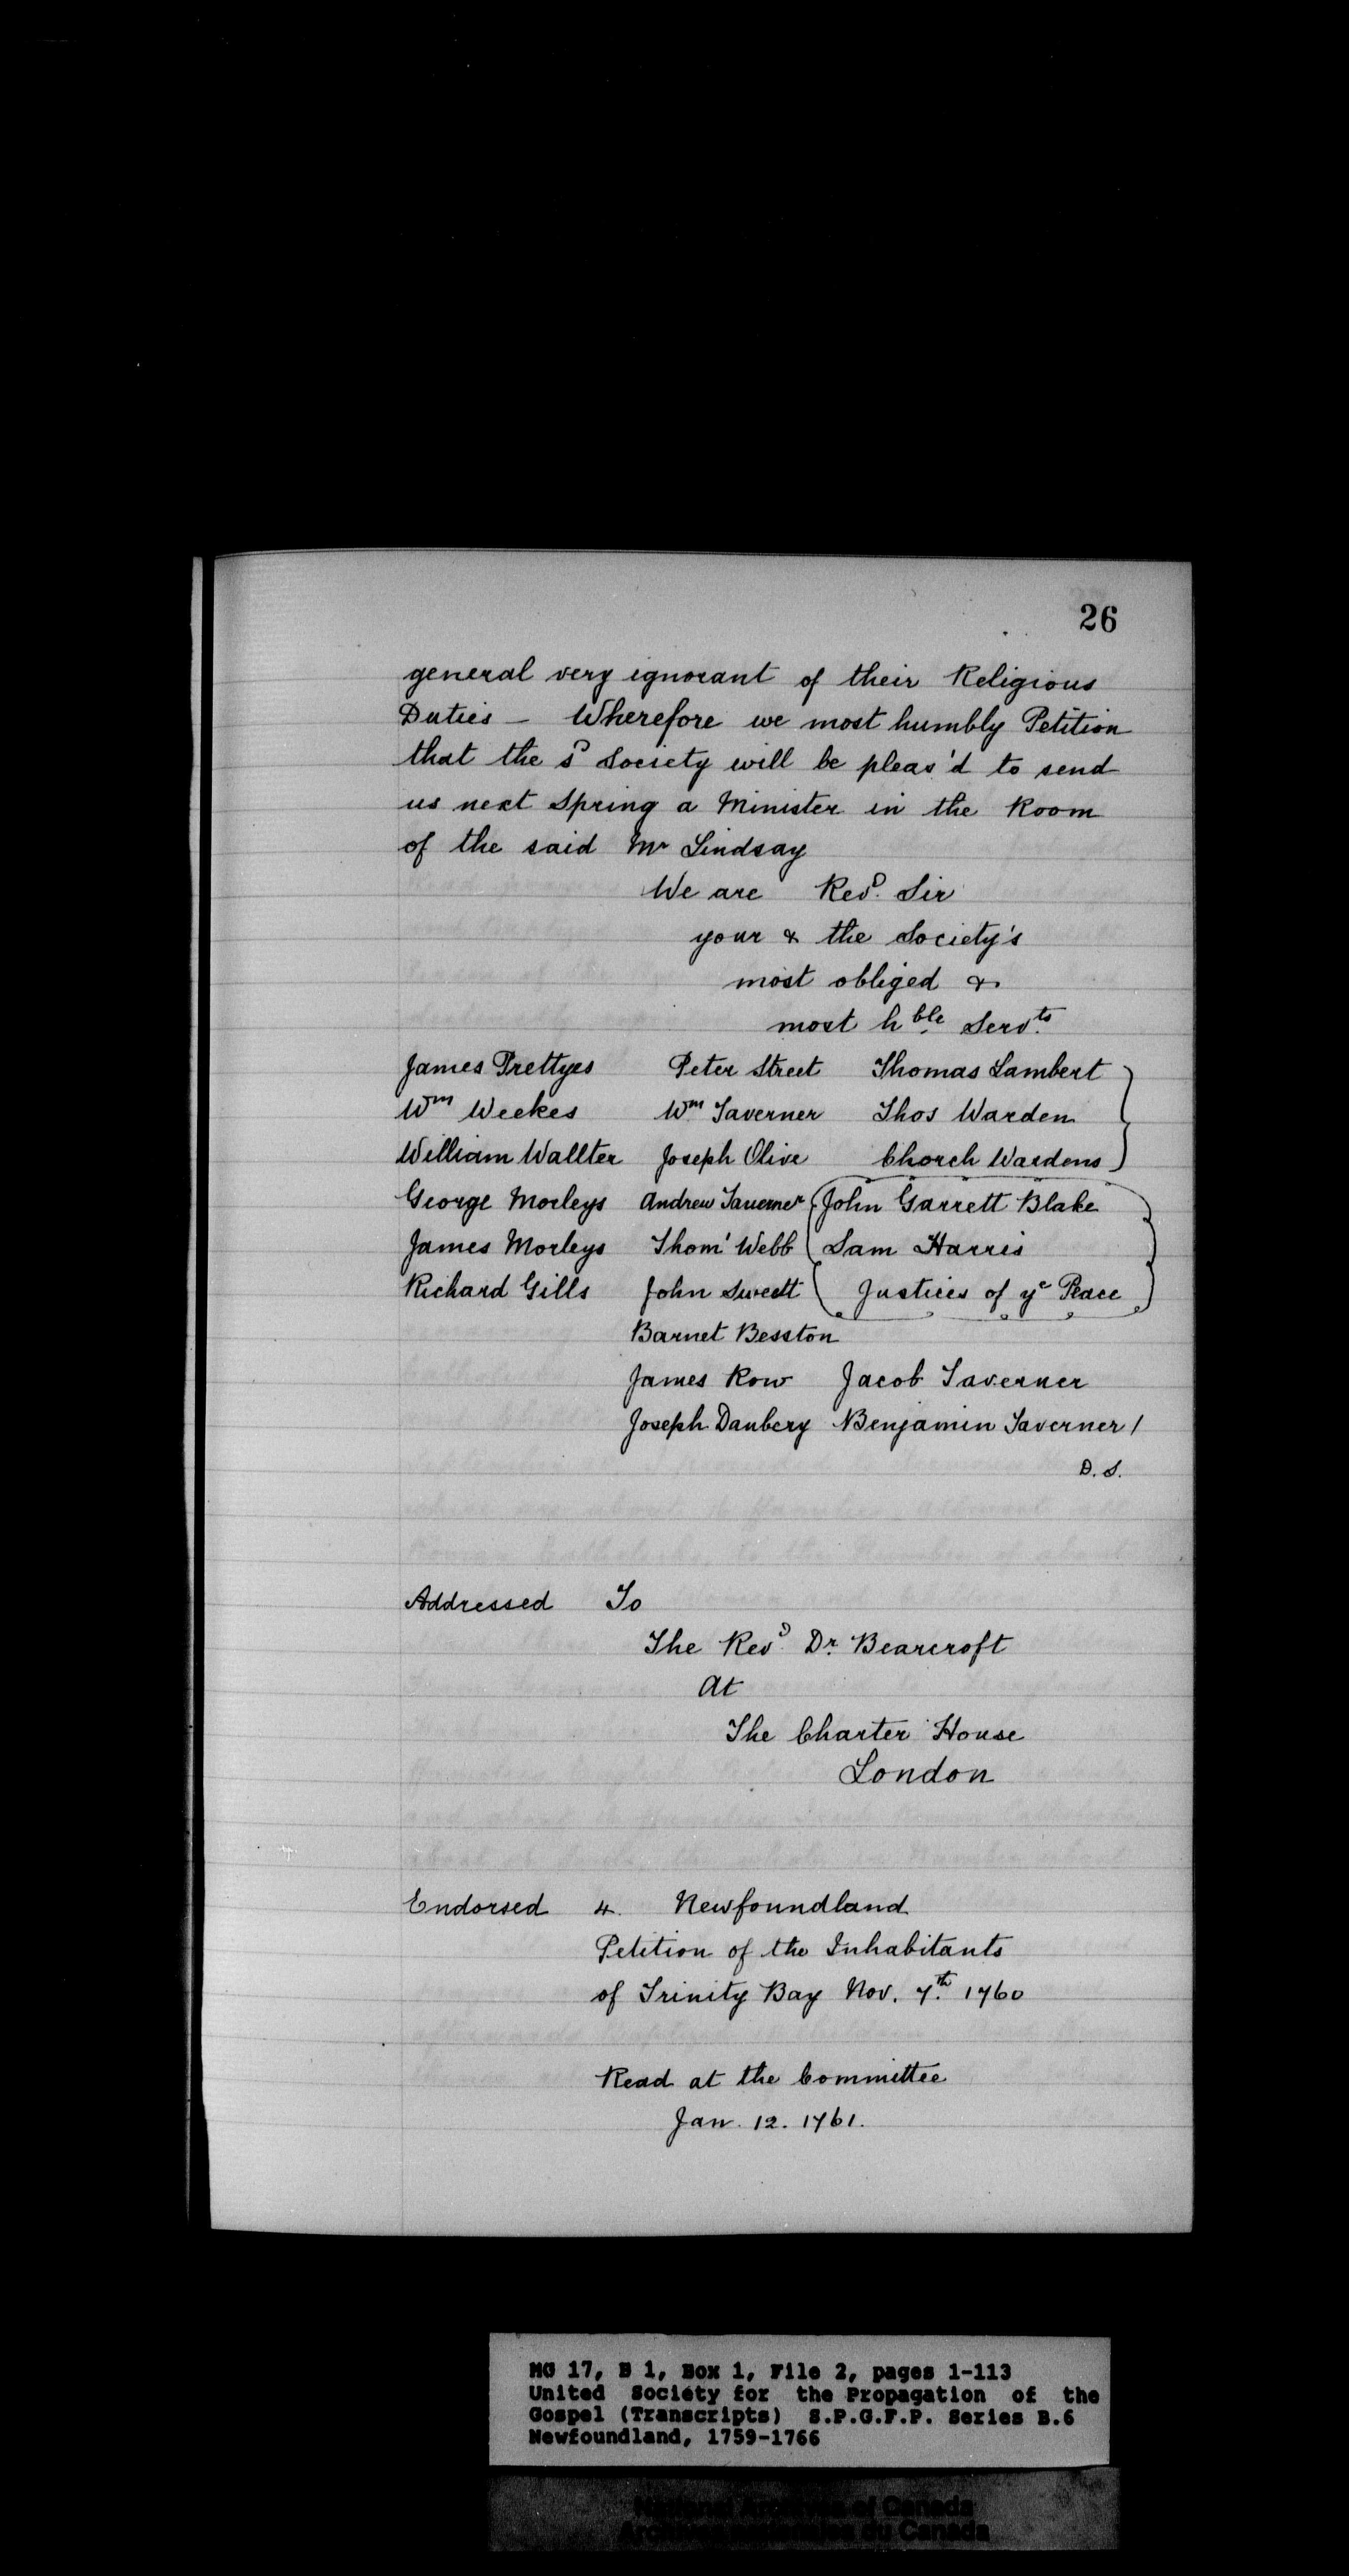 26
general very ignorant of their Religious
Duties — Wherefore we most humbly Petition
that the sᴰ Society will be pleas'd to send
us next Spring a Minister in the Room
of the said Mr Lindsay
We are Revᴰ. Sir
your & the Society's
most obliged &
most hble Servts
James Prettyes Peter Street Thomas Lambert
Wm Weekes Wm Taverner Thos Warden
William Wallter Joseph Olive Chorch Wardens
George Morleys Andrew Taverner John Garrett Blake
James Morleys Thom' Webb Sam Harris
Richard Gills John Sweett Justices of ye Peace
Barnet Besston
James Row Jacob Taverner
Joseph Danbery Benjamin Taverner /
D. S.
Addressed To
The Revᴰ. Dr. Bearcroft
At
The Charter House
London
Endorsed 4. Newfoundland
Petition of the Inhabitants
of Trinity Bay Nov. 7th. 1760
Read at the Committee
Jan. 12. 1761.
MG 17, B 1, Box 1, File 2, pages 1-113
United Society for the Propagation of the
Gospel (Transcripts) S.P.G.F.P. Series B.6
Newfoundland, 1759-1766
National Archives of Canada
Archives nationales du Canada